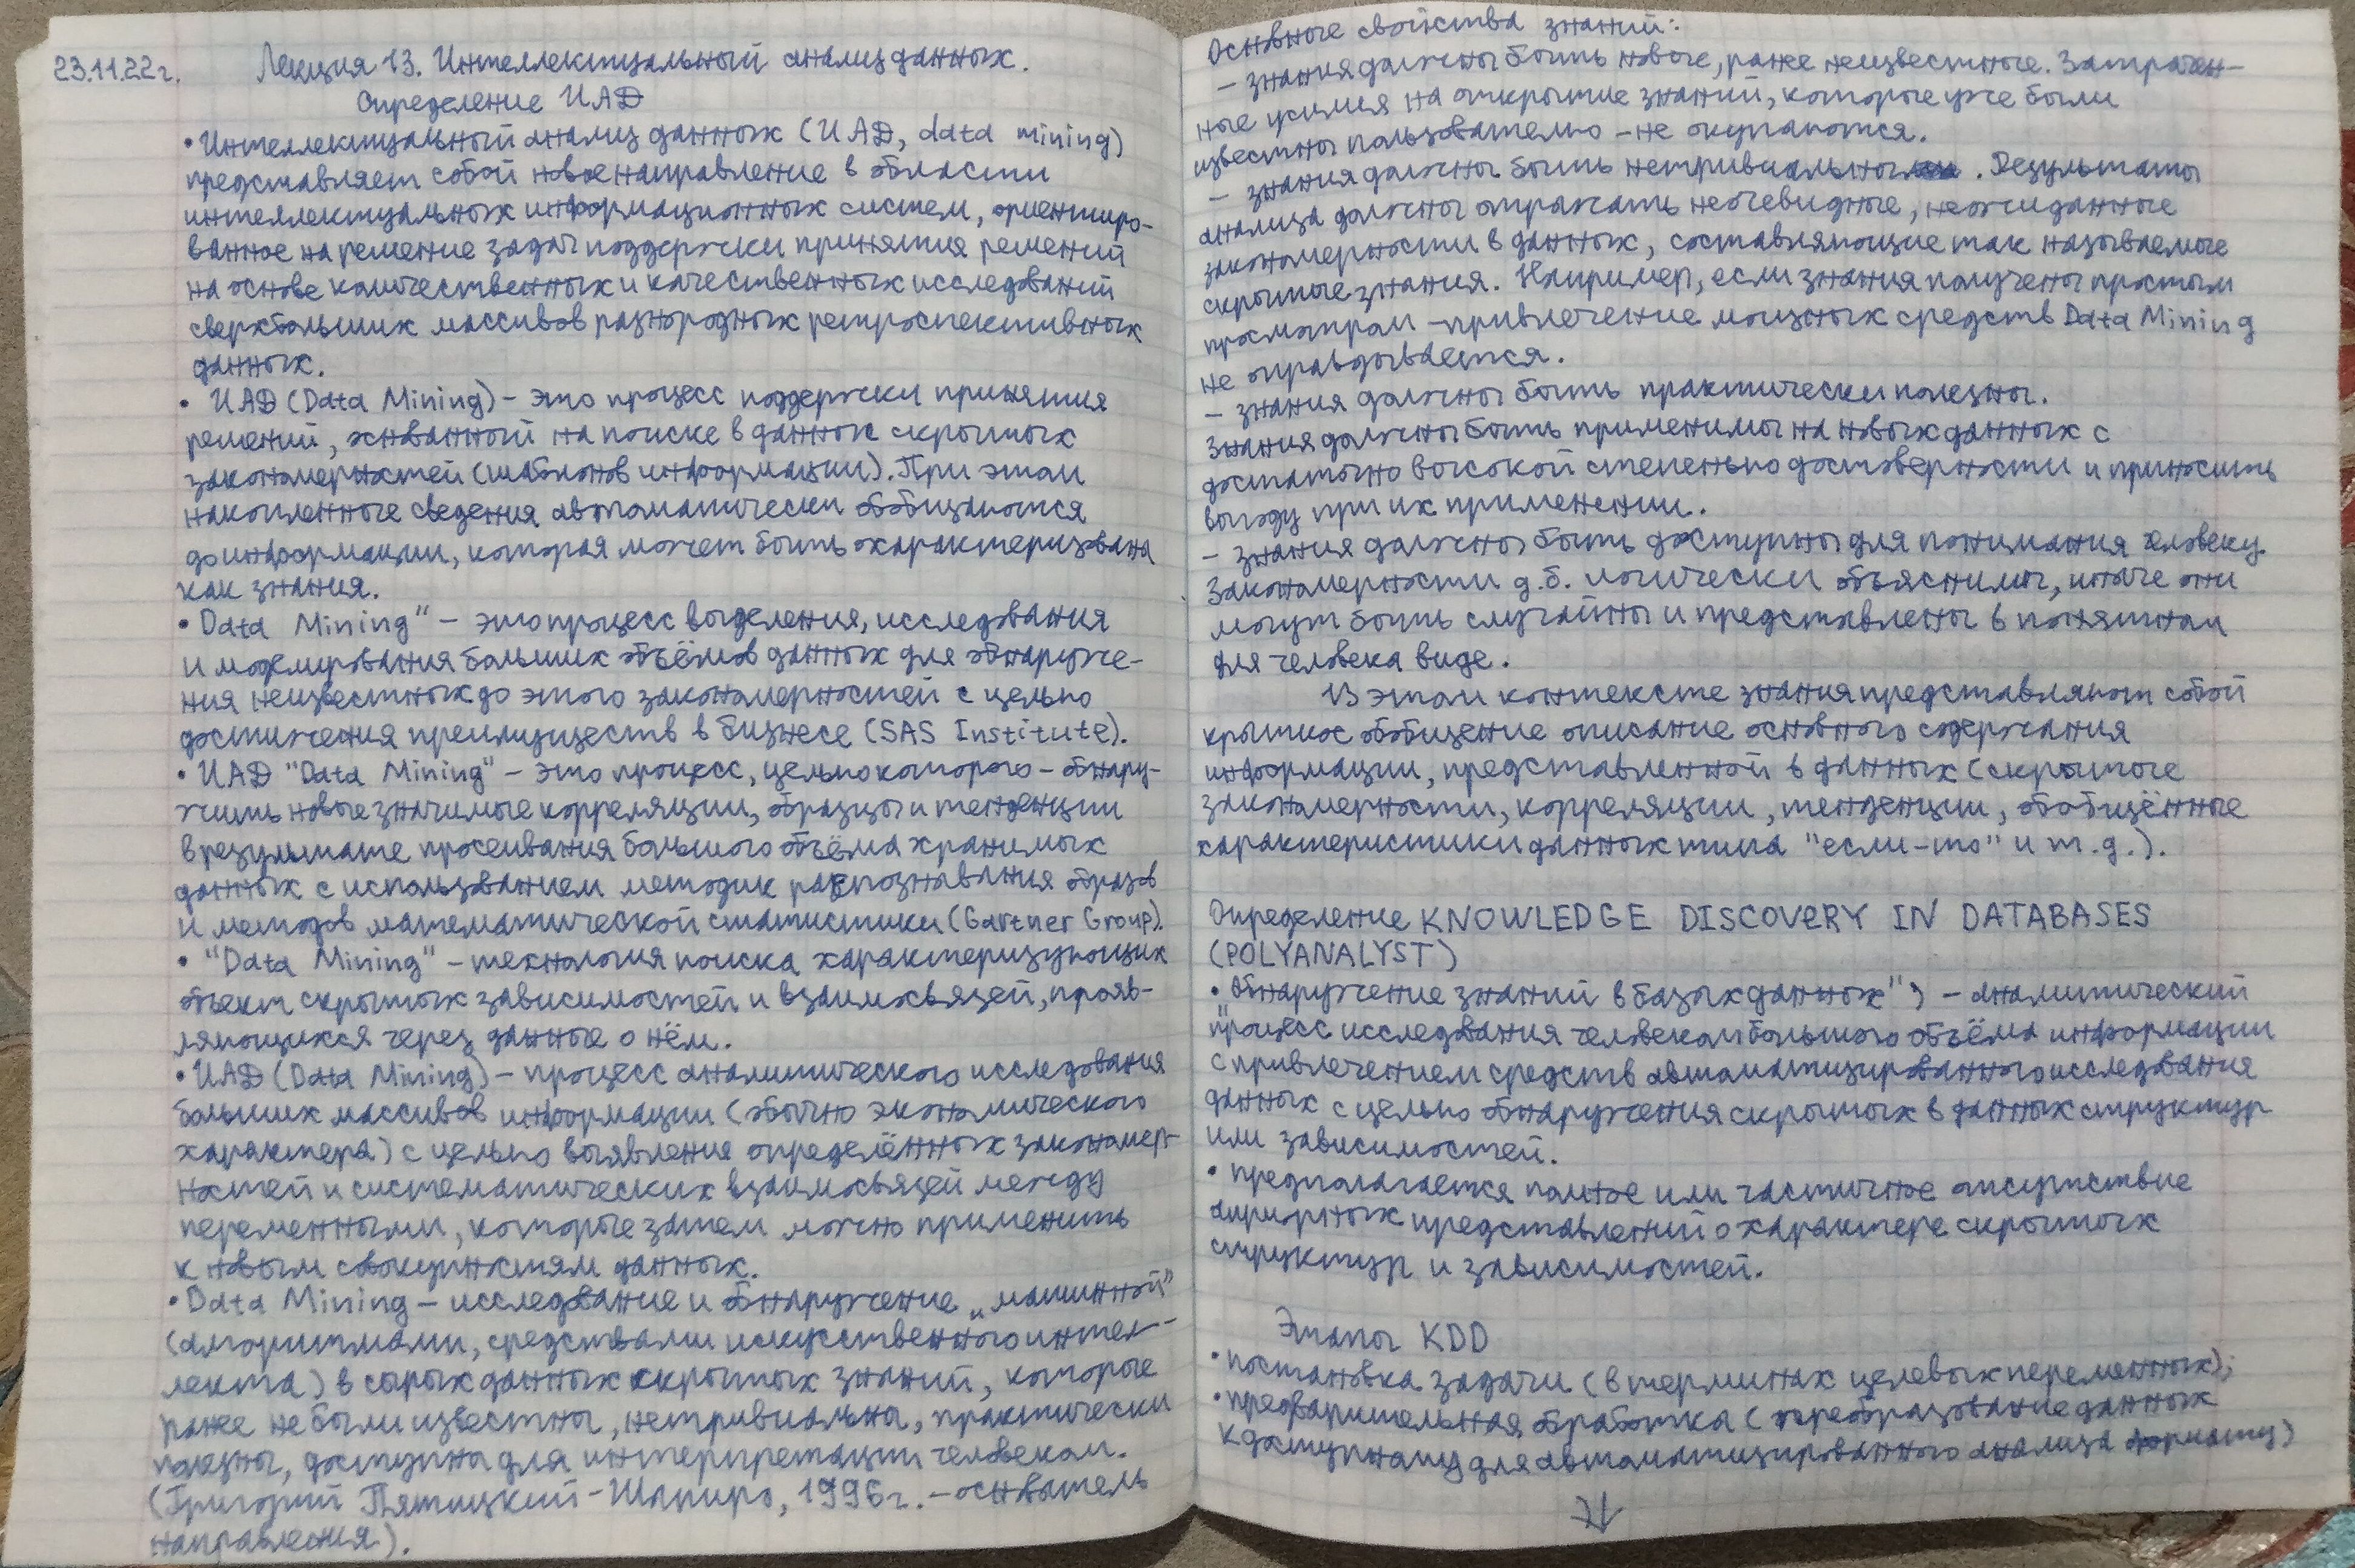 23.11.22г. Лекция 13. Интеллектуальный анализ данных.
Определение ИАД
• Интеллектуальный анализ данных (ИАД, data mining)
представляет собой новое направление в области
интеллектуальных информационных систем, ориентиро-
ванное на решение задач поддержки принятия решений
на основе количественных и качественных исследований
сверхбольших массивов разнородных ретроспективных
данных.
• ИАД (Data Mining) – это процесс поддержки принятия
решений, основанный на поиске в данных скрытых
закономерностей (шаблонов информации). При этом
накопленные сведения автоматически обобщаются
до информации, которая может быть охарактеризована
как знания.
• Data Mining" – это процесс выделения, исследования
и моделирования больших объёмов данных для обнаруже-
ния неизвестных до этого закономерностей с целью
достижения преимуществ в бизнесе (SAS Institute).
• ИАД "Data Mining" – это процесс, целью которого – обнару-
жить новые значимые корреляции, образцы и тенденции
в результате просеивания большого объёма хранимых
данных с использованием методик распознавания образов
и методов математической статистики (Gartner Group).
• "Data Mining" – технология поиска характеризующих
объект скрытых зависимостей и взаимосвязей, прояв-
ляющихся через данные о нём.
• ИАД (Data Mining) – процесс аналитического исследования
больших массивов информации (обычно экономического
характера) с целью выявления определённых закономер-
ностей и систематических взаимосвязей между
переменными, которые затем можно применить
к новым совокупностям данных.
• Data Mining – исследование и обнаружение „машиной"
(алгоритмами, средствами искусственного интел-
лекта) в сырых данных скрытых знаний, которые
ранее не были известны, нетривиальны, практически
полезны, доступны для интерпретации человеком.
(Григорий Пятецкий-Шапиро, 1996г. – основатель
направления).
Основные свойства знаний:
– знания должны быть новые, ранее неизвестные. Затрачен-
ные усилия на открытие знаний, которые уже были
известны пользователю – не окупаются.
– знания должны быть нетривиальны. Результаты
анализа должны отражать неочевидные, неожиданные
закономерности в данных, составляющие так называемые
скрытые знания. Например, если знания получены простым
просмотром – привлечение мощных средств Data Mining
не оправдывается.
– знания должны быть практически полезны.
Знания должны быть применимы на новых данных с
достаточно высокой степенью достоверности и приносить
выгоду при их применении.
– знания должны быть доступны для понимания человеку.
Закономерности д.б. логически объяснимы, иначе они
могут быть случайны и представлены в понятном
для человека виде.
В этом контексте знания представляют собой
краткое обобщение описание основного содержания
информации, представленной в данных (скрытые
закономерности, корреляции, тенденции, обобщённые
характеристики данных типа "если-то" и т.д.).
Определение KNOWLEDGE DISCOVERY IN DATABASES
(POLYANALYST)
• "Обнаружение знаний в базах данных") – аналитический
процесс исследования человеком большого объёма информации
с привлечением средств автоматизированного исследования
данных с целью обнаружения скрытых в данных структур
или зависимостей.
• предполагается полное или частичное отсутствие
априорных представлений о характере скрытых
структур и зависимостей.
Этапы KDD
• постановка задачи (в терминах целевых переменных);
• предварительная обработка (преобразование данных
к доступному для автоматизированного анализа формату)